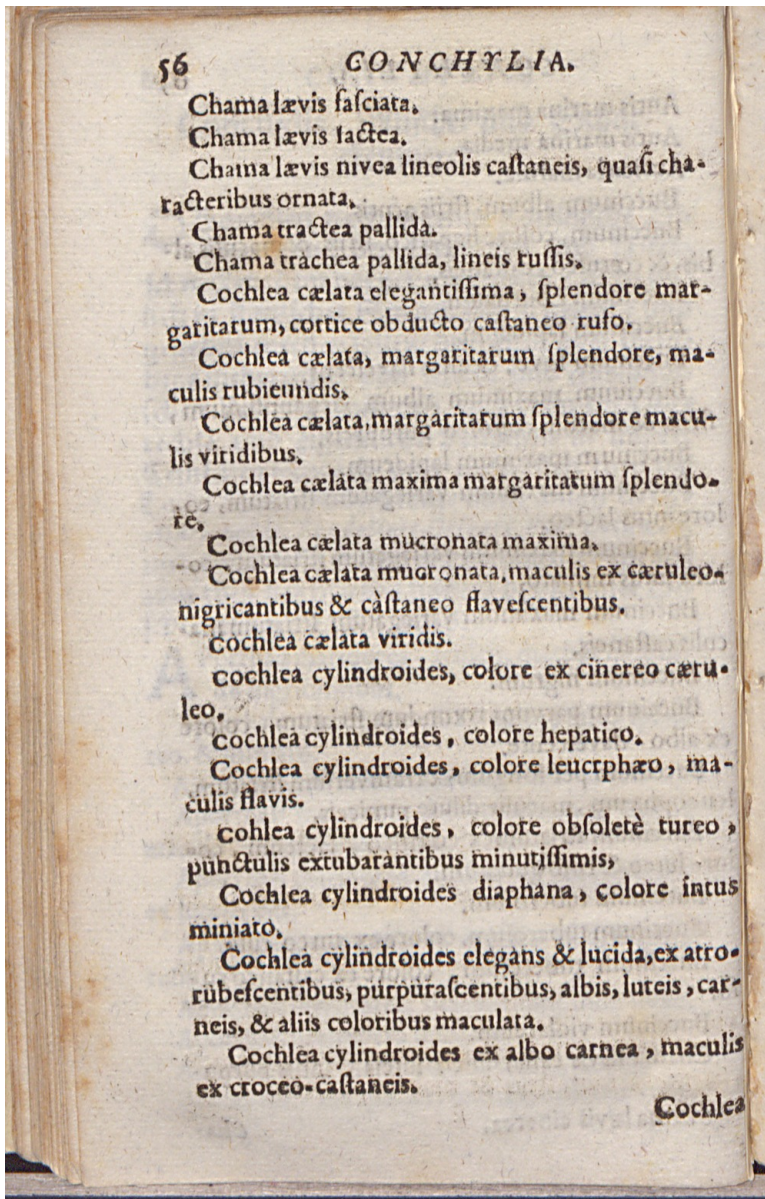 56 CONCHYLIA.
Chama lævis fasciata.
Chama lævis lactea.
Chama lævis nivea lineolis castaneis, quasi cha-
racteribus ornata.
Chama tractea pallida.
Chama trachea pallida, lineis russis.
Cochlea cælata elegantissima, splendore mar-
garitarum, cortice obducto castaneo rufo.
Cochlea cælata, margaritarum splendore, ma-
culis rubicundis.
Cochlea cælata, margaritarum splendore macu-
lis viridibus.
Cochlea cælata maxima margaritarum splendo-
re.
Cochlea cælata mucronata maxima.
Cochlea cælata mucronata, maculis ex cæruleo-
nigricantibus & càstaneo flavescentibus.
Cochlea cælata viridis.
Cochlea cylindroides, colore ex cinereo cæru-
leo.
Cochlea cylindroides, colore hepatico.
Cochlea cylindroides, colore leucrphæo, ma-
culis flavis.
Cohlea cylindroides, colore obsoletè tureo,
punctulis extubarantibus minutissimis,
Cochlea cylindroides diaphana, colore intus
miniato.
Cochlea cylindroides elegans & lucida, ex atro-
rubescentibus, purpurascentibus, albis, luteis, car-
neis, & aliis coloribus maculata.
Cochlea cylindroides ex albo carnea, maculis
ex croceo-castaneis.
Cochlea